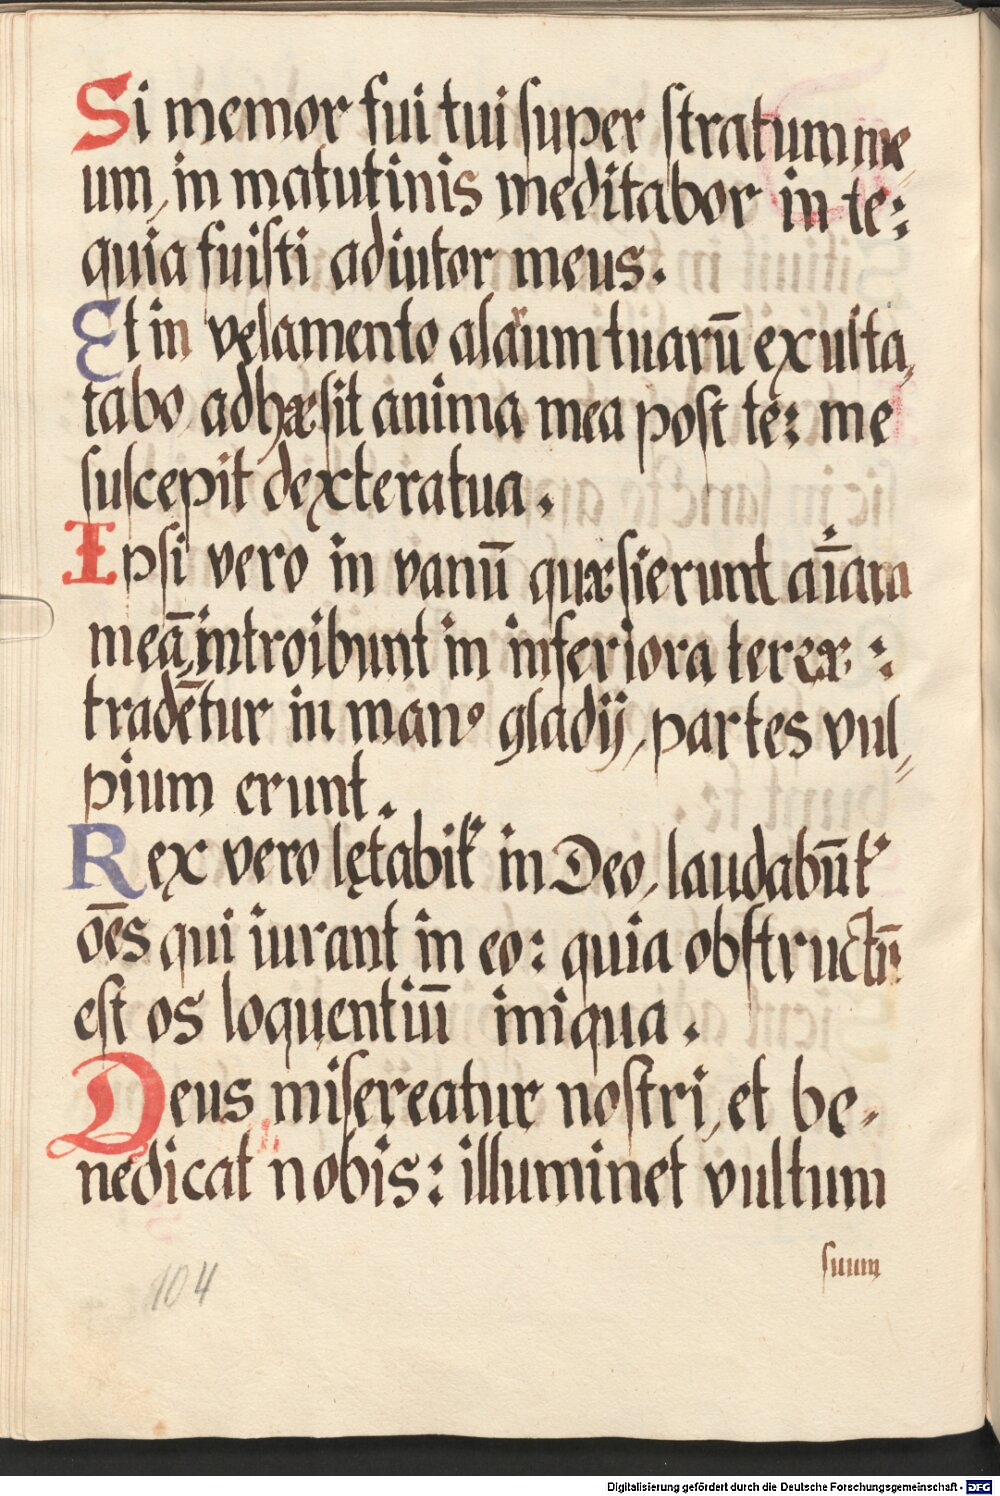 Si memor fui tui super stratum me,
um, in matutinis meditabor in te:
quia fuisti adiutor meus.
Et in velamento alarum tuarū exulta,
tabo, adhæsit anima mea post te: me
suscepit dextera tua.
Ipsi vero in vanū quæsierunt aīam
meā, introibunt in inferiora terræ:
tradētur in man⁹ gladij, partes vul,,
pium erunt.
Rex vero lętabit᷑ in Deo, laudabūt᷑
oēs qui iurant in eo: quia obstructū
est os loquentiū iniqua.
Deus misereatur nostri, et be-
nedicat nobis: illuminet vultum
suum
104
Digitalisierung gefördert durch die Deutsche Forschungsgemeinschaft - DFG